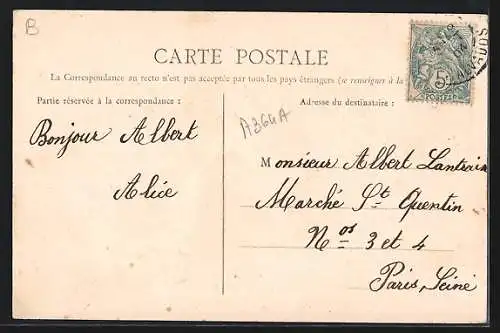 B
CARTE POSTALE
La Correspondance au recto n'est pas acceptée par tous les pays étrangers (se renseigner à la
Partie réservée à la correspondance :
Adresse du destinataire :
A364A
Bonjour Albert
Alice
Monsieur Albert Lantrain
Marché St Quentin
Nos 3 et 4
Paris, Seine
5c
POSTES